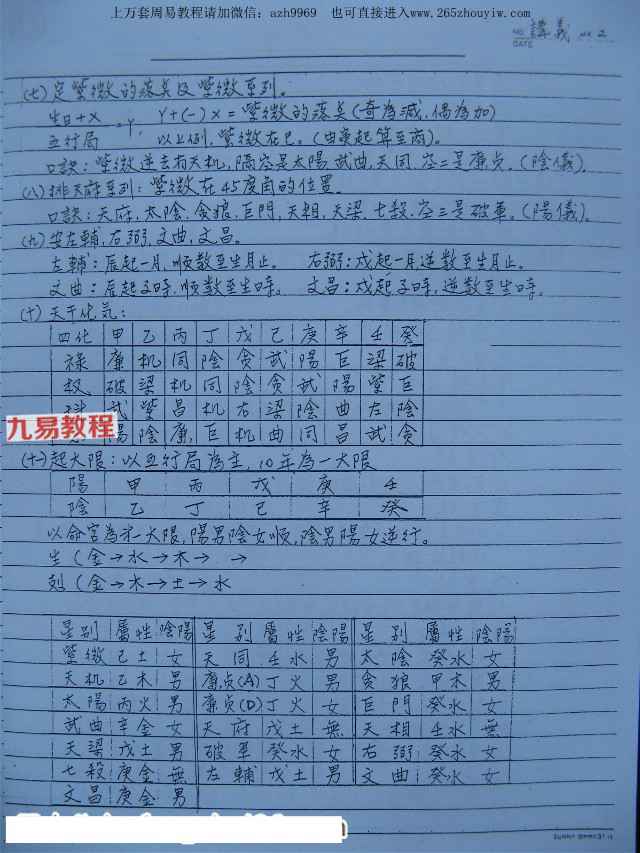 上万套周易教程请加微信：azh9969 也可直接进入www.265zhouyiw.com
NO. 講義 2
DATE
(七)定紫微的落点及紫微系列。
生日+X/五行局=Y, Y+(-)X=紫微的落点(奇為減,偶為加)
以上例,紫微在巳。(由寅起算至商)。
口訣:紫微逆去有天机,隔空是太陽.武曲,天同.空二是廉貞。(陰儀)。
(八)排天府系列:紫微在45度角的位置。
口訣:天府,太陰.貪狼.巨門,天相,天梁.七殺.空三是破軍。(陽儀)。
(九)安左輔,右弼,文曲,文昌。
左輔:辰起一月,順数至生月止。 右弼:戌起一月,逆数至生月止。
文曲:辰起子時,順数至生時。 文昌:戌起子時,逆数至生時。
(十)天干化気:
四化 甲 乙 丙 丁 戊 己 庚 辛 壬 癸
祿 廉 机 同 陰 貪 武 陽 巨 梁 破
权 破 梁 机 同 陰 貪 武 陽 紫 巨
科 武 紫 昌 机 右 梁 陰 曲 左 陰
陽 陰 廉 巨 机 曲 同 昌 武 貪
九易教程
(十一)起大限:以五行局為主,10年為一大限
陽 甲 丙 戊 庚 壬
陰 乙 丁 己 辛 癸
以命宮為第一大限,陽男陰女順,陰男陽女逆行。
生(金→水→木→ →
剋(金→木→土→水
星別 屬性 陰陽 星別 屬性 陰陽 星別 屬性 陰陽
紫微 己土 女 天同 壬水 男 太陰 癸水 女
天机 乙木 男 廉貞(A) 丁火 男 貪狼 甲木 男
太陽 丙火 男 廉貞(D) 丁火 女 巨門 癸水 女
武曲 辛金 女 天府 戊土 無 天相 壬水 無
天梁 戊土 男 破軍 癸水 女 右弼 癸水 女
七殺 庚金 無 左輔 戊土 男 文曲 癸水 女
文昌 庚金 男